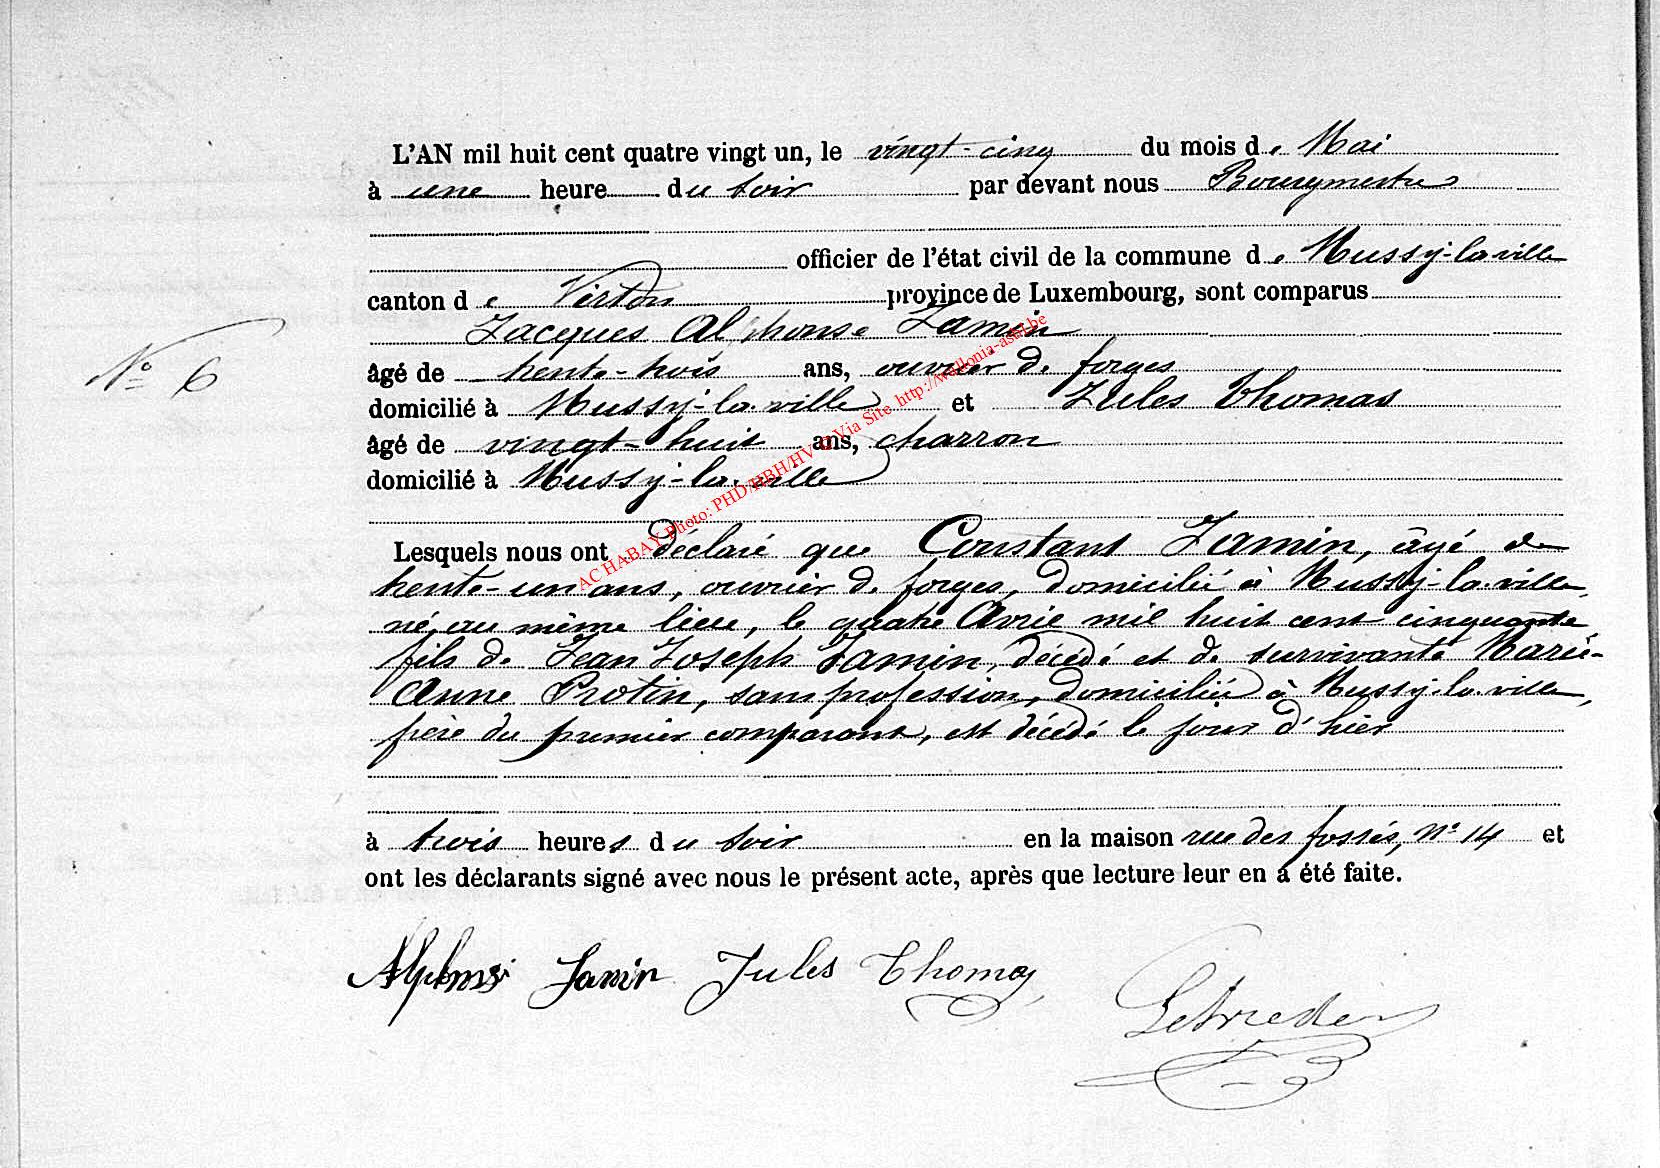 L'AN mil huit cent quatre vingt un, le vingt-cinq du mois de Mai
à une heure du soir par devant nous Bourgmestre
officier de l'état civil de la commune de Mussy-la-ville
canton de Virton province de Luxembourg, sont comparus
Jacques Alphonse Jamin
N° 6
âgé de trente-trois ans, ouvrier de forges
domicilié à Mussy-la-ville et Jules Thomas
âgé de vingt-huit ans, charron
domicilié à Mussy-la-ville
AC HABAY Photo: PHD/HBH/HV © Via Site http://wallonia-asbl.be
Lesquels nous ont déclaré que Constant Jamin, âgé de
trente-un ans, ouvrier de forges, domicilié à Mussy-la-ville,
né au même lieu, le quatre Avril mil huit cent cinquante
fils de Jean Joseph Jamin, décédé et de survivante Marie-
Anne Protin, sans profession, domiciliée à Mussy-la-ville,
frère du premier comparant, est décédé le jour d'hier
à trois heures du soir en la maison rue des fossés, N° 14 et
ont les déclarants signé avec nous le présent acte, après que lecture leur en a été faite.
Alphonse Jamin Jules Thomas